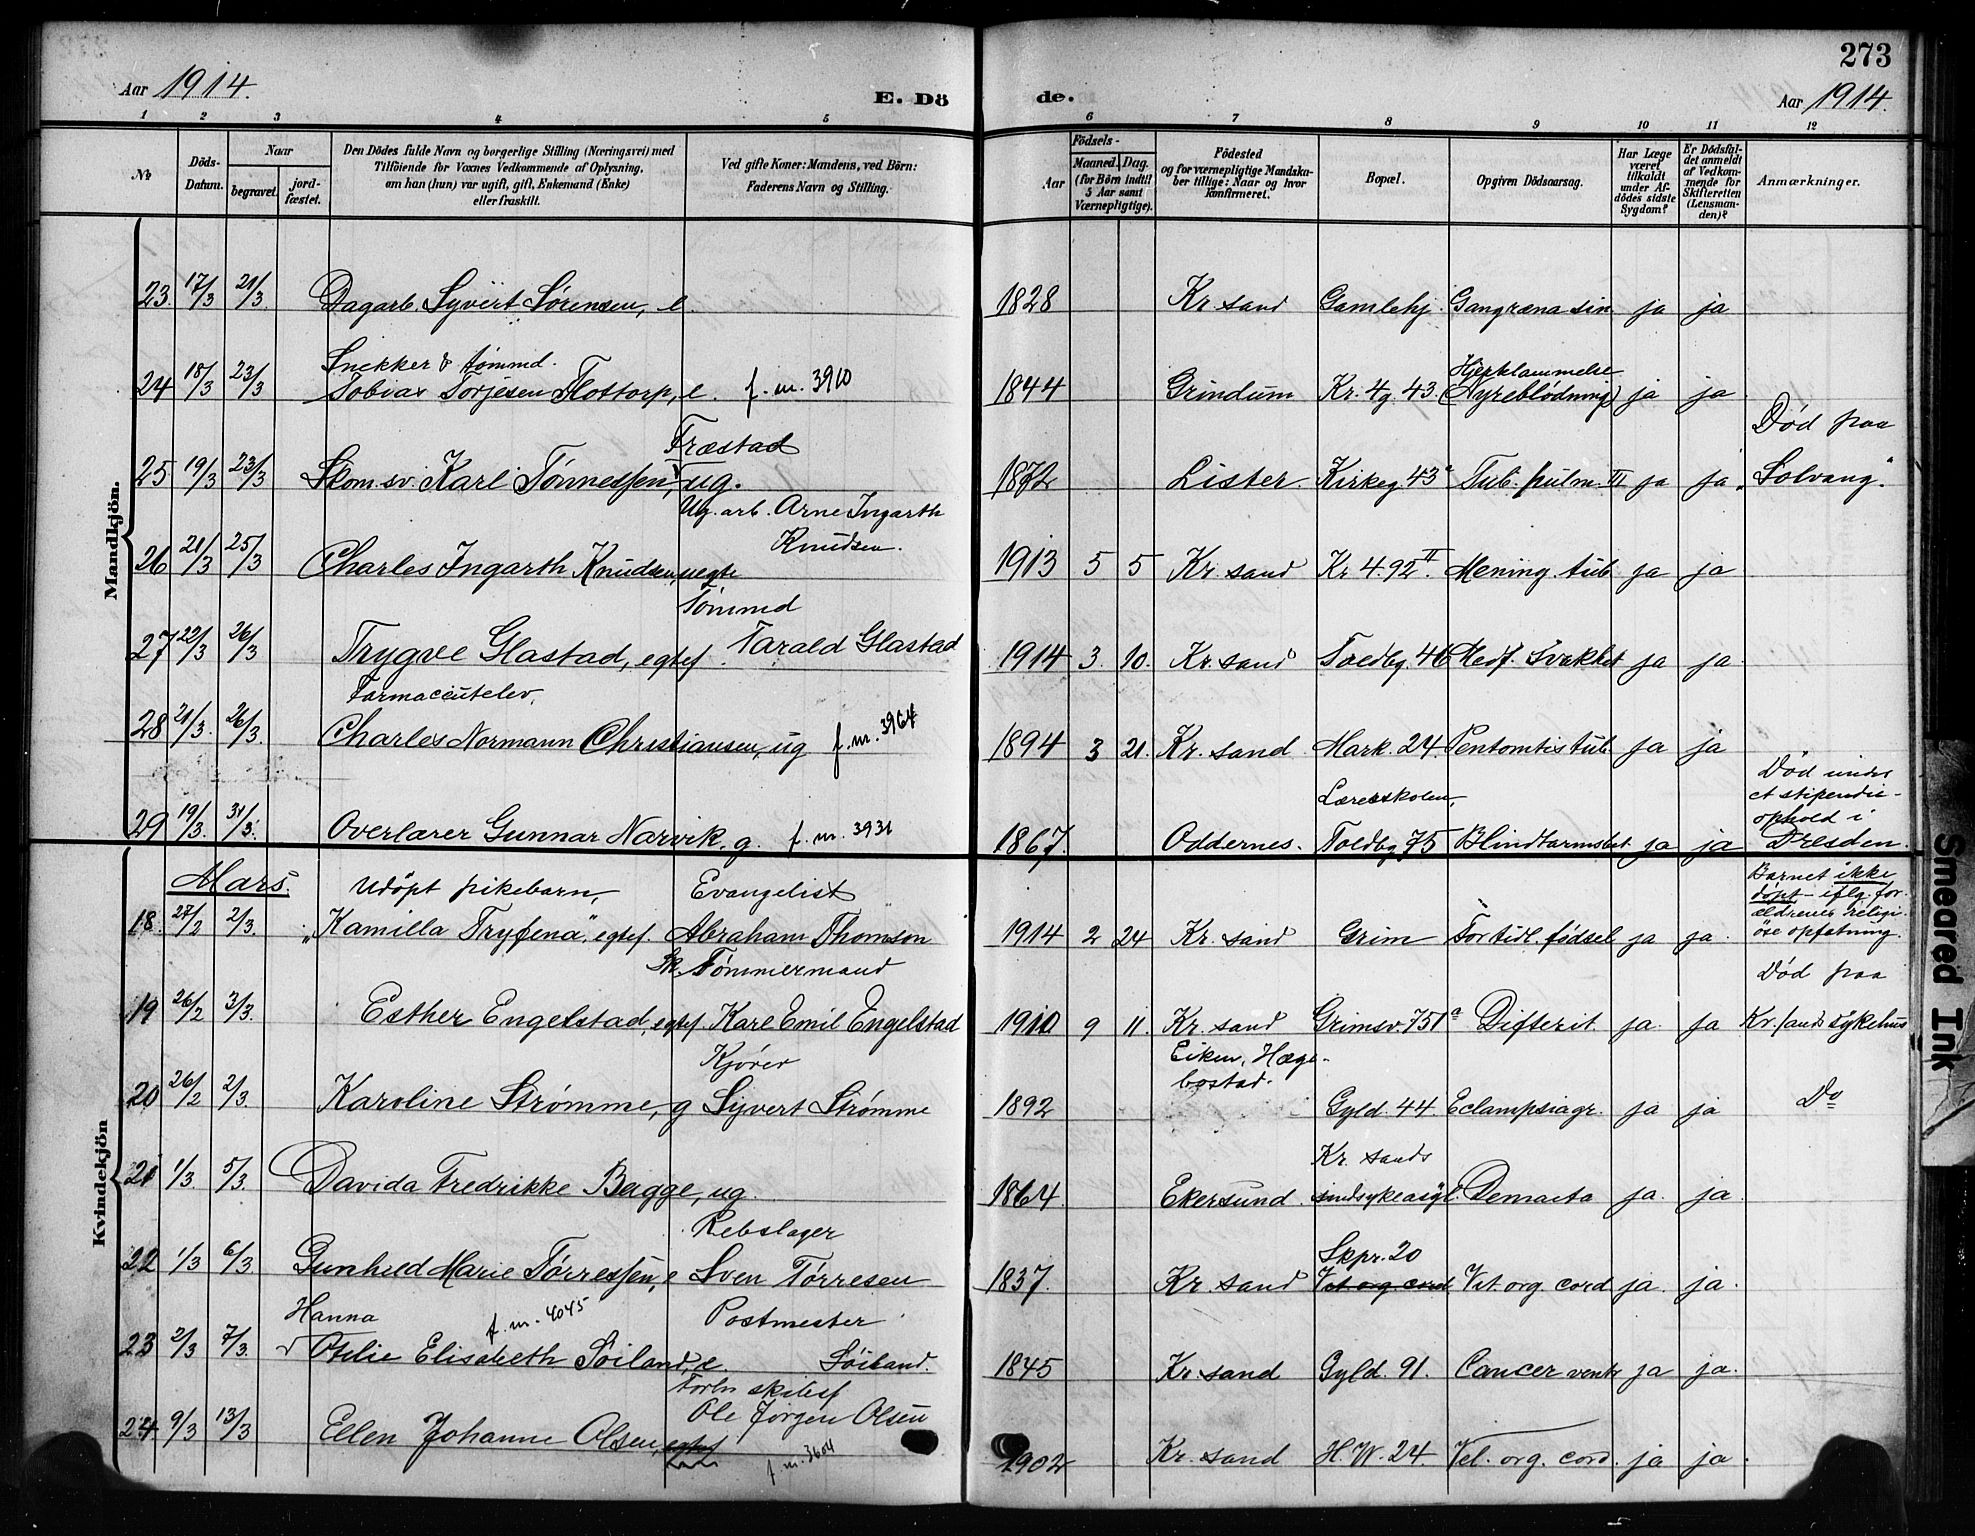 273
Aar 1914.
E. Dö
de.
Aar 1914.
1 2 3 4 5 6 7 8 9 10 11 12
No
Döds-
Datum.
Naar
begravet.
jord-
fæstet.
Den Dödes fulde Navn og borgerlige Stilling (Næringsvei) med
Tilföiende for Voxnes Vedkommende af Oplysning,
om han (hun) var ugift, gift, Enkemand (Enke)
eller fraskilt.
Ved gifte Koner: Mandens, ved Börn:
Faderens Navn og Stilling.
Födsels-
Aar
Maaned.
Dag.
(for Börn indtil
5 Aar samt
Værnepligtige).
Födested
og for værnepligtige Mandska-
ber tillige: Naar og hvor
konfirmeret.
Bopæl.
Opgiven Dödsaarsag.
Har Læge
været
tilkaldt
under Af-
dödes sidste
Sygdom?
Er Dödsfal-
det anmeldt
af Vedkom-
mende for
Skifteretten
(Lensman-
den)?
Anmærkninger.
Mandkjön.
23. 17/3 21/3. Dagarb. Syvert Sørensen, e. 1828 Kr. sand Gamlehj. Gangræna sin ja ja
Snekker & tømmd.
24 18/3 23/3 Tobias Torjesen Flottorp, e. f. m. 3910 1844 Grindum Kr. 4g. 43. Hjerklammelse
(Nyreblödning) ja ja
Træstad
25 19/3 23/3 Skom.sv. Karl Tønnessen, ug. 1872 Lister Kirkeg. 43a Tub. pulm. III ja ja Død paa
"Solvang."
Ug. arb. Arne Ingarth
Knudsen.
26 21/3 25/3 Charles Ingarth Knudsen, uegte 1913 5 5 Kr. sand Kr 4. 92 II. Mening. tub ja ja
Tømmd
27 22/3 26/3 Trygve Glastad, egtef. Tarald Glastad 1914 3. 10. Kr. sand Toldbg. 46 Medf. Svakhet ja ja
Farmaceutelev,
28 21/3. 26/3. Charles Normann Christiansen, ug f. m. 3964 1894 3 21. Kr. sand Mark. 24. tub ja ja
29 19/3. 31/3. Overlærer Gunnar Narvik. g. f. m. 3931 1867. Oddernes. Lærerskolen,
Toldbg 75 Blindtarmsbet ja ja Død under
et stipendie-
ophold i
Dresden.
Kvindekjön
Mars.
Udöpt pikebarn, Evangelist
18. 27/2 2/3. "Kamilla Tryfena", egtef. Abraham Thomson 1914 2 24 Kr. sand Grim For tidl. födsel ja ja. Barnet ikke
döpt - iflg. for-
ældrenes religi-
öse opfatning.
Sk. Tömmermand
19 26/2 3/3. Esther Engelstad, egtef. Karl Emil Engelstad 1910 9 11. Kr. sand Grimsv. 751a Difterit ja. ja Død paa
Kr.sands sykehus
Kjörer
20 26/2 2/3. Karoline Strømme, g Syvert Strømme 1892 Eiken, Hæge-
bostad. Gyld. 44 Eclampsia gr. ja ja Do
21 1/3. 5/3. Davida Fredrikke Bagge, ug 1864. Ekersund. Kr. sands
sindsykeasyl. ja. ja
Rebslager
22 1/3 6/3. Gunhild Marie Tørressen, e Sven Tørresen 1837. Kr. sand Skpr. 20
Vit og cord Vit. org. cord ja. ja.
Hanna f. m. 4045 Postmester
23 2/3 7/3. Otilie Elisabeth Söiland, e. Söiland. 1845 Kr. sand Gyld. 91. Cancer ventr ja ja.
Ole Jørgen Olsen
24 9/3 13/3 Ellen Johanne Olsen, egtef f. m. 3604 1902 Kr. sand H. W. 24. Vit. org. cord. ja ja.
Smeared Ink